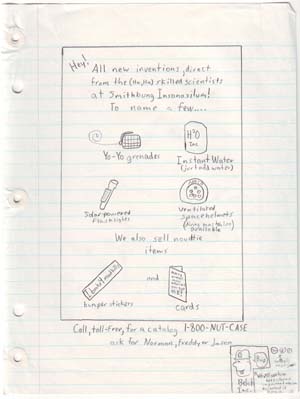 Hey!
All new inventions, direct
from the (Ha, Ha) skilled scientists
at Smithbung Insanasilum!
To name a few....
H²O
Inc
Yo-Yo grenades
Instant Water
(just add water)
Solar powered
Flashlights
Ventilated
spacehelmets
available
We also sell
items
and
bumper stickers
cards
Call, toll-free, for a catalog 1-800-NUT-CASE
ask for Norman, Freddy or Jason
Inc.